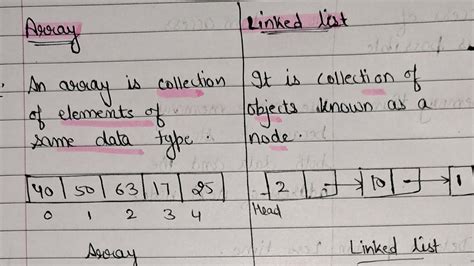 Array
An array is collection
of elements of
same data type.
40 50 63 17 25
0 1 2 3 4
Array
Linked list
It is collection of
objects known as a
node.
2 10 1
Head
Linked list